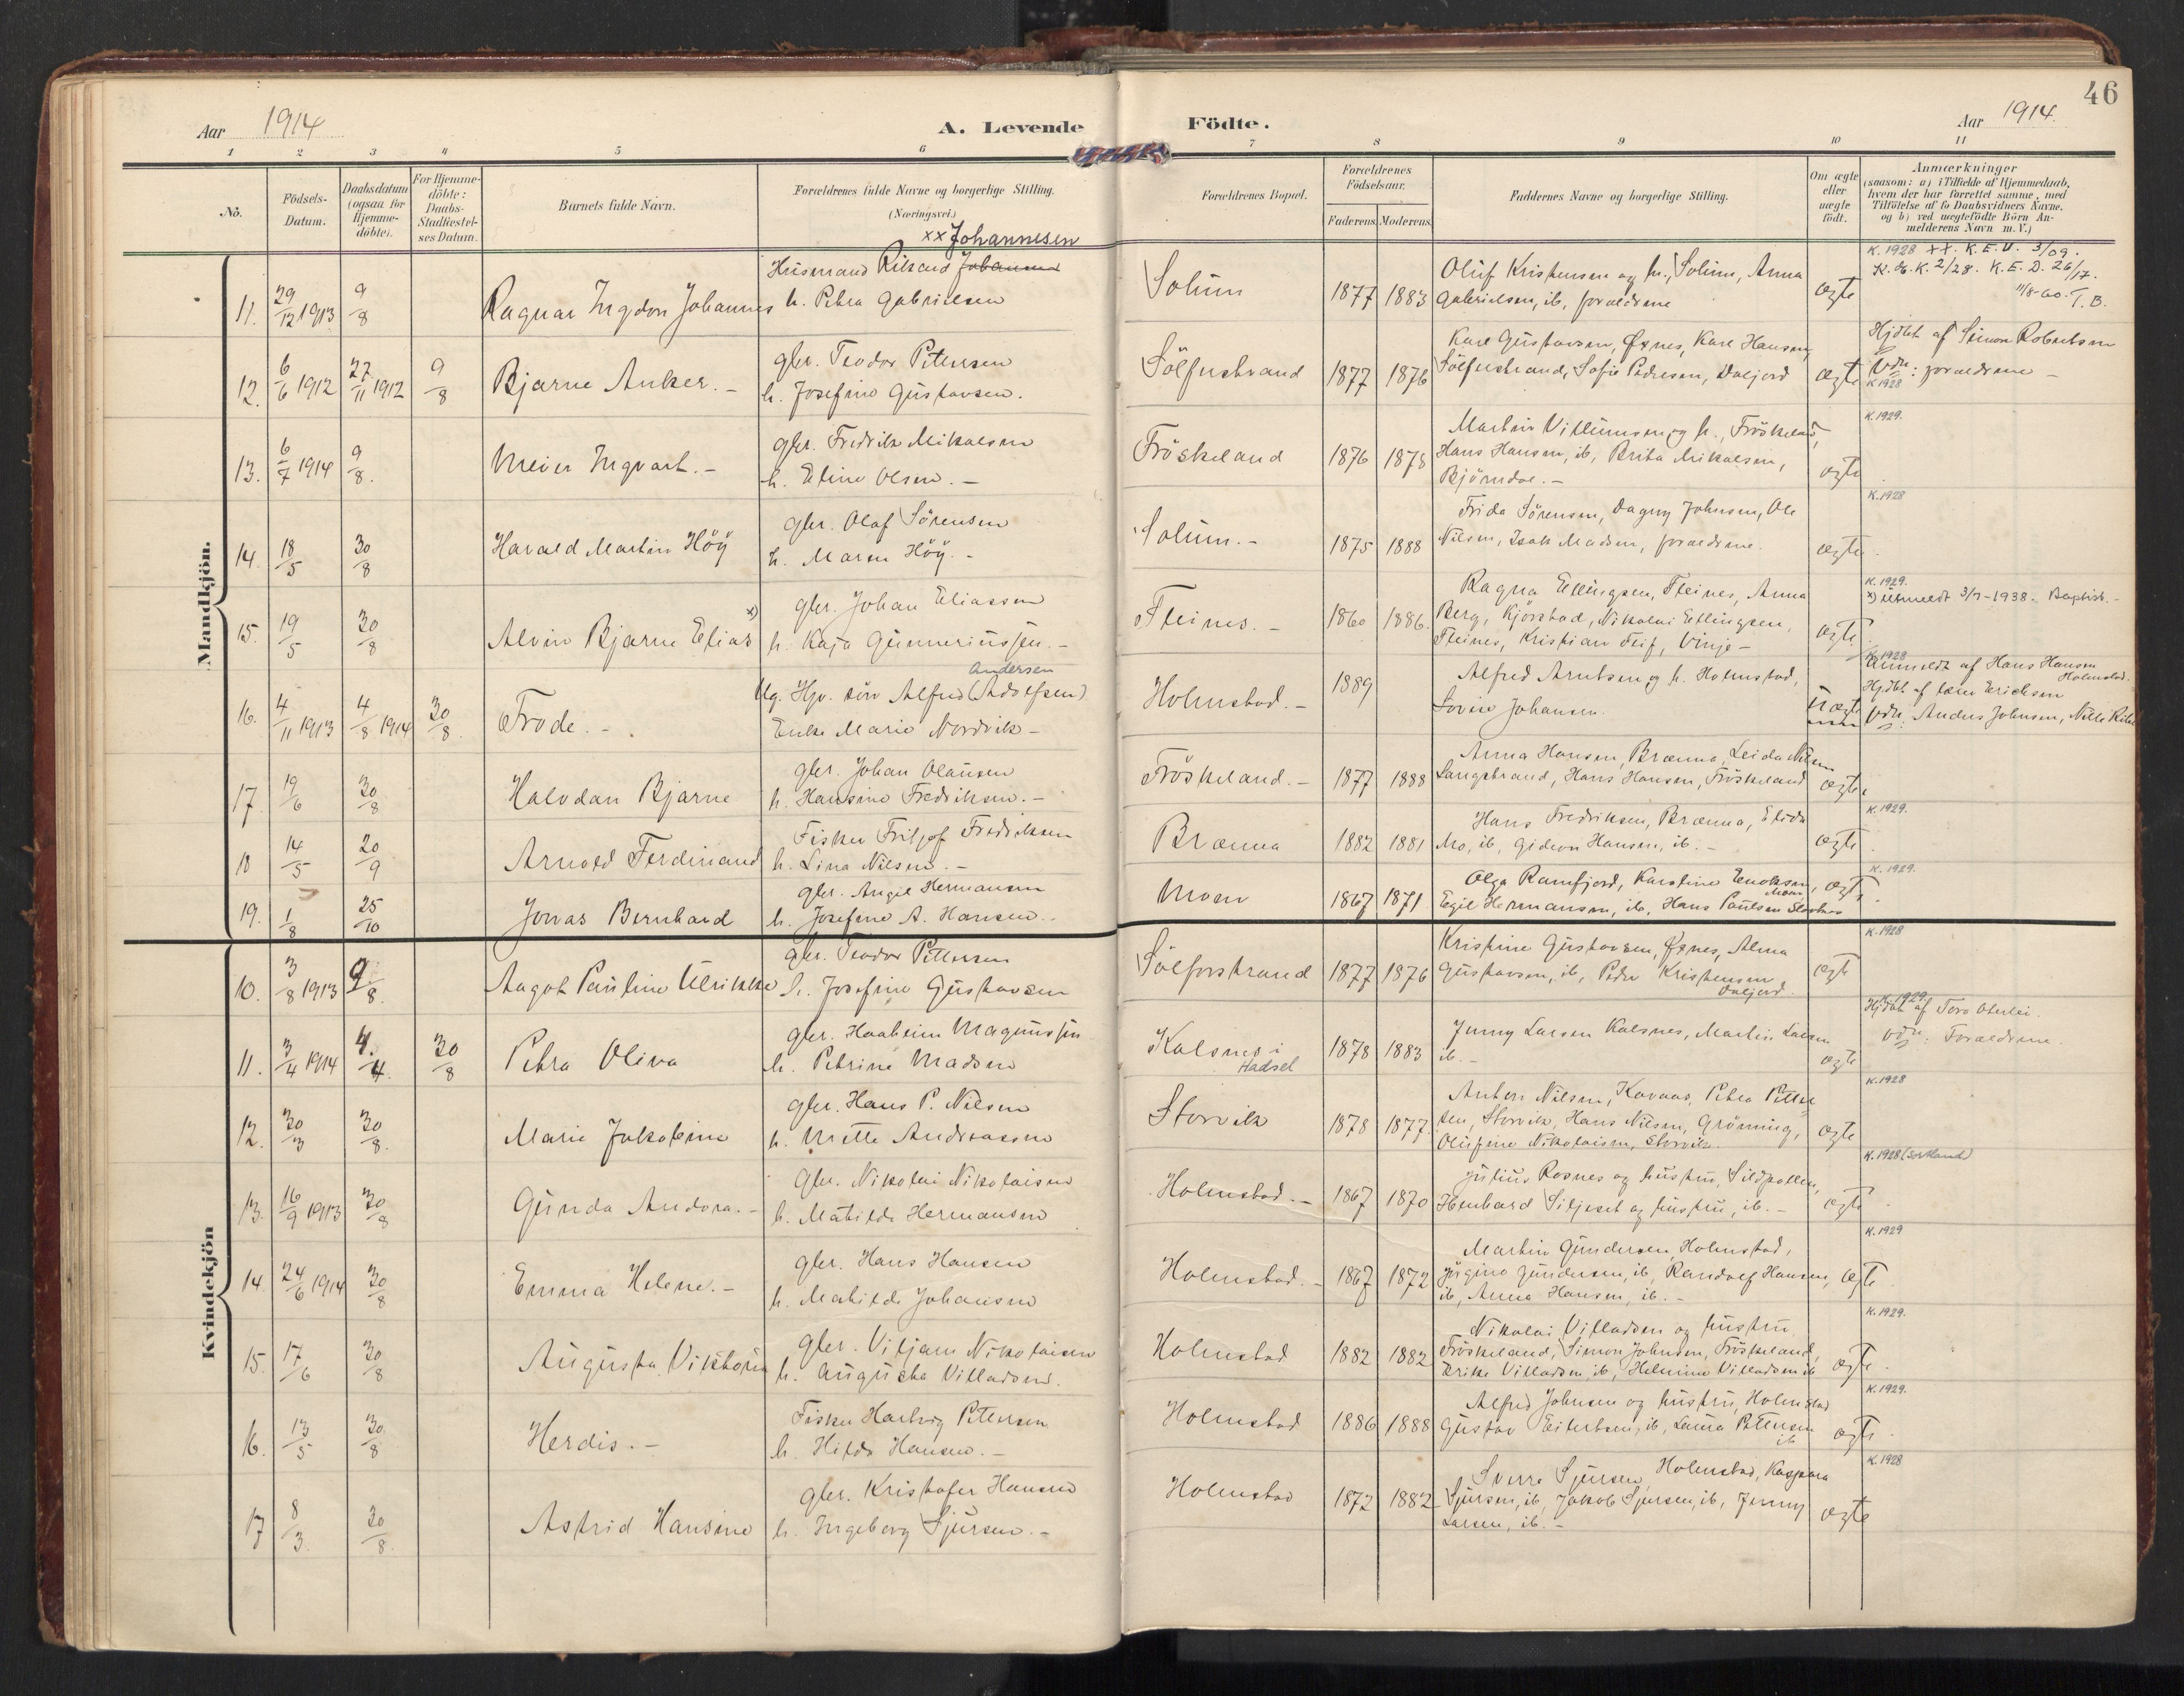 46
Aar 1914
A. Levende Födte.
Aar 1914.
1 2 3 4 5 6 7 8 9 10 11
No.
Födsels-
Datum.
Daabsdatum
(ogsaa for
Hjemme-
döbte).
For Hjemme-
döbte:
Daabs-
Stadfæstel-
ses Datum.
Barnets fulde Navn.
Forældrenes fulde Navne og borgerlige Stilling.
(Næringsvei.)
Forældrenes Bopæl.
Forældrenes
Födselsaar.
Faderens. Moderens.
Faddernes Navne og borgerlige Stilling.
Om ægte
eller
uægte
født.
Anmærkninger
(saasom: a) i Tilfælde af Hjemmedaab,
hvem der har forrettet samme, med
Tilföielse af to Daabsvidners Navne.
og b) ved uægtefödte Börn An-
melderens Navn m. V.)
Mandkjön.
xx Johannesen
11. 29/12 1913 9/8 Ragnar Ingdon Johannes
Husmand Rikard Johansen
h. Petra Gabrielsen
Solum 1877 1883
Oluf Kristensen og h., Solum, Anna
Gabrielsen, ib, forældrene
ægte
K. 1928 xx. K.E.U. 3/09.
K.G.K. 2/28. K.E.D. 26/17.
11/8-60. T.B.
12. 6/6 1912 27/11 1912 9/8 Bjarne Anker. -
gbr. Teodor Pettersen
h. Josefine Gustavsen.
Sölfustrand 1877 1876
Karl Gustavsen, Øxnes, Karl Hansen,
Sölfustrand, Sofie Pedersen, Daljord
ægte
Hjdbt af Simon Robertsen
Vdn: forældrene -
K 1928
13. 6/7 1914 9/8. Meier Ingvart. -
gbr. Fredrik Mikalsen
h. Eline Olsen. -
Fröskeland 1876 1878
Martin Villumsen og h., Fröskeland,
Hans Hansen, ib, Brita Mikalsen,
Björndal. -
ægte
K. 1929.
14. 18/5 30/8 Harald Martin Höÿ
gbr. Olaf Sörensen
h. Maren Höÿ. -
Solum. - 1875 1888
Frida Sörensen, Dagny Johnsen, Ole
Nilsen, Isak Madsen, forældrene.
ægte.
K. 1928
15. 19/5 30/8 Alvin Bjarne Elias x)
gbr. Johan Eliassen
h. Kaja Gunneriussen. -
Fleines. - 1860 1886.
Ragna Ellingsen, Fleines, Anna
Berg, Kjörstad, Nikolai Ellingsen,
Fleines, Kristian Feif, Vinje -
ægte.
K. 1929.
x) Utmeldt 3/7-1938. Baptist. -
16. 4/11 1913 4/8 1914 30/8. Frode. -
Andersen
Ug. Hjv. sön Alfred (Adolfsen)
Enke Marie Nordvik -
Holmstad. - 1889
Alfred Arntsen og h. Holmstad,
Lovise Johansen.
Uægte
K. 1928
Anmeldt af Hans Hansen
Holmstad.
Hjdbt af Ericksen
Vdn: Anders Johnsen, Nille
17. 19/6 30/8 Halvdan Bjarne
gbr. Johan Olausen
h. Hansine Fredriksen. -
Fröskeland. - 1877 1888
Anna Hansen, Brænna, Leida Nilsen
Langstrand, Hans Hansen, Fröskeland
ægte.
18 14/5 20/9 Arnold Ferdinand
Fisker Fritjof Fredriksen
h. Lina Nilsen. -
Brænna 1882 1881
Hans Fredriksen, Brænna, Elida
Mo, ib, Gideon Hansen, ib. -
ægte.
K. 1929.
19. 1/8 25/10 Jonas Bernhard
gbr. Angel Hermansen
h. Josefine A. Hansen. -
Moen 1867 1871
Olga Ramfjord, Karoline Enoksen,
Moen
Egil Hermansen, ib, Hans Paulsen
ægte.
K. 1929.
Kvindekjön
10. 3/8 1913 9/8. Aagot Pauline Ulrikke
gbr. Teodor Pettersen
h. Josefine Gustavsen
Sölforstrand 1877 1876
Kristine Gustavsen, Øxnes, Alma
Gustavsen, ib, Peder Kristensen
Daljord.
ægte
K. 1928
11. 3/4 1914 4./4. 30/8 Petra Oliva
gbr. Haaheim Magnussen
h. Petrine Madsen
Kalsnes i
Hadsel
1878 1883
Jenny Larsen Kalsnes, Martin Larsen
ib. -
ægte
K. 1929.
Hjdbt af Tora Oterlei.
Vdn: Forældrene
12. 30/3 30/8. Marie Jakobine
gbr. Hans P. Nilsen
h. Mette Andreassen
Storvik 1878 1877.
Anton Nilsen, Kavaas, Petra Petter
sen, Storvik, Hans Nilsen, Grönning,
Olufine Nikolaisen, Storvik.
ægte
K. 1928
13. 16/9 1913 30/8 Gunda Andora. -
gbr. Nikolai Nikolaisen
h. Matilde Hermansen
Holmstad. - 1867 1870
Julius Rosnes og hustru, Sildpollen,
Henhard Siljeset og hustru, ib. -
ægte.
K. 1928 (Sortland)
14. 24/6 1914 30/8 Emma Helene. -
gbr. Hans Hansen
h. Matilde Johansen
Holmstad. - 1867 1872
Martin Gundersen, Holmstad,
Jörgine Gundersen, ib, Randolf Hansen,
ib, Anna Hansen, ib. -
ægte.
K. 1929
15. 17/6 30/8 Augusta Viktoria
gbr. Viljam Nikolaisen
h. Augusta Villadsen.
Holmstad 1882 1882
Nikolai Villadsen og hustru
Fröskeland, Simon Johnsen, Fröskeland,
Erike Villadsen ib, Helmine Villadsen ib
ægte.
K. 1929.
16. 13/5 30/8 Herdis. -
Fisker Hartvig Pettersen
h. Hilda Hansen. -
Holmstad 1886 1888
Alfred Johnsen og hustru, Holmstad
Gustav Eilertsen, ib, Laura Pettersen
ib
ægte.
K. 1929.
17 8/3. 30/8. Astrid Hansine
gbr. Kristofer Hansen
h. Ingeborg Sjursen. -
Holmstad 1872 1882
Sverre Sjursen, Holmstad, Kaspara
Sjursen, ib, Jakob Sjursen, ib, Jenny
Larsen, ib. -
ægte
K. 1928